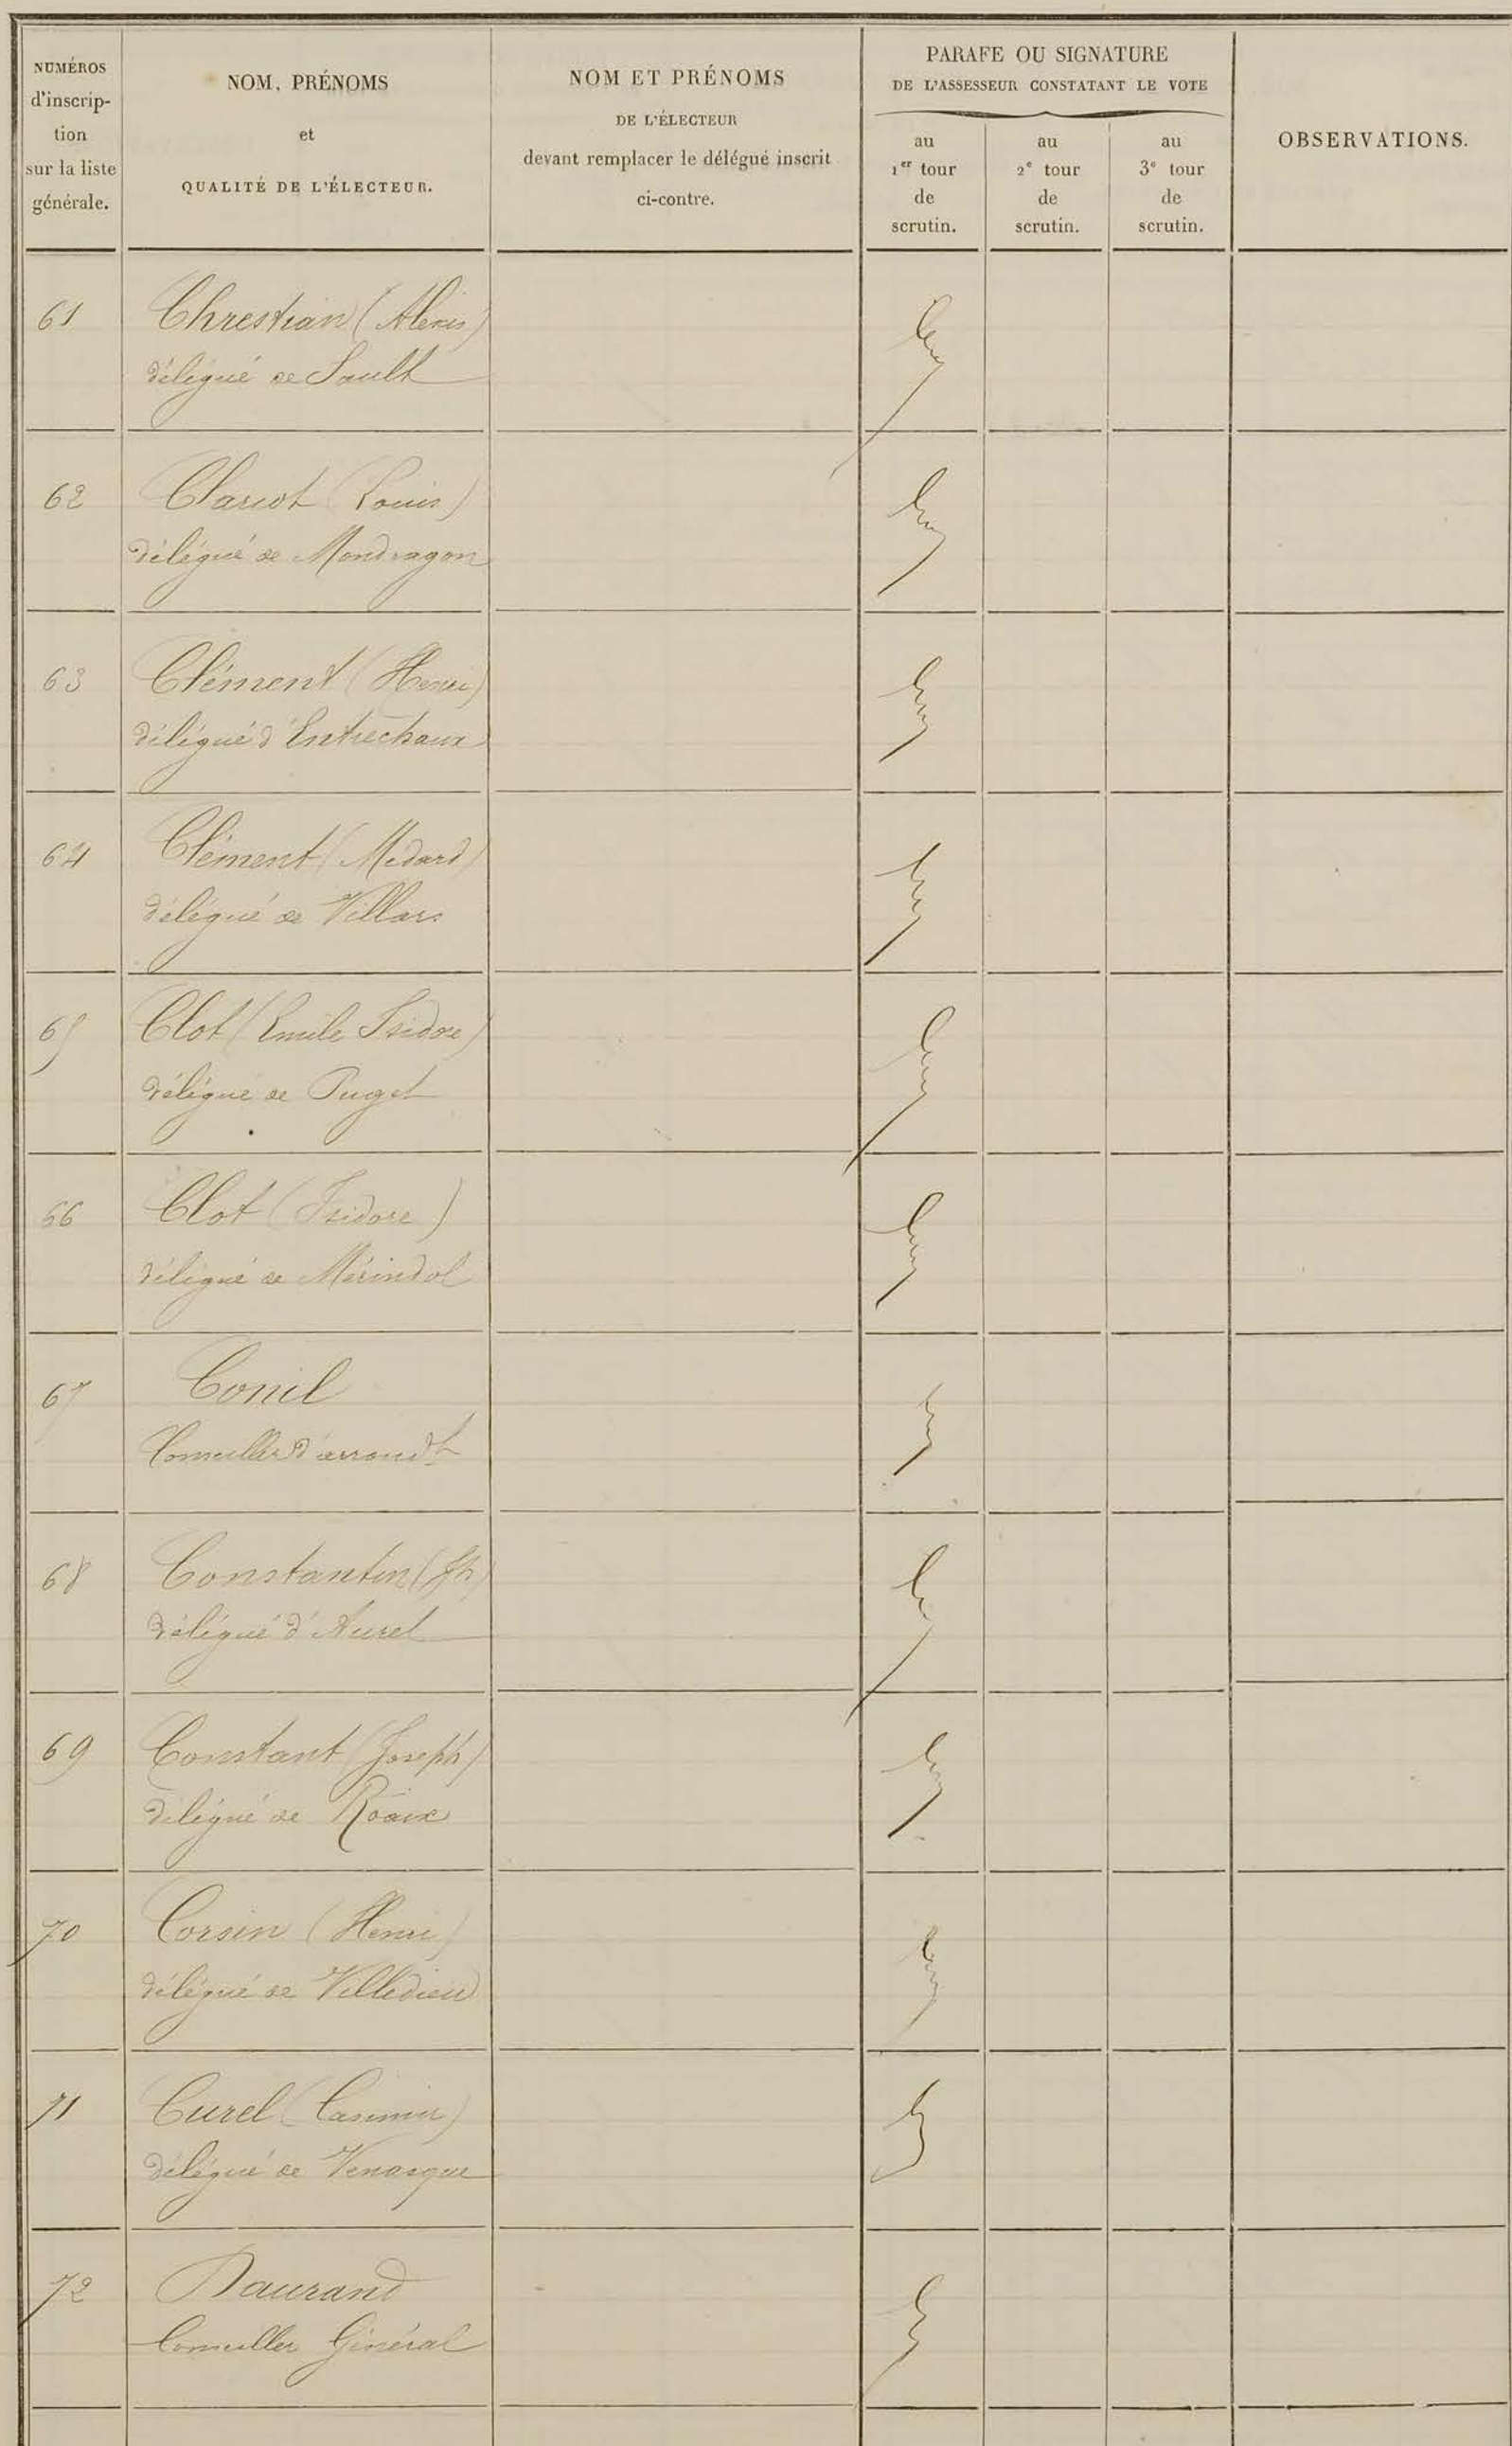 NUMÉROS
d'inscrip-
tion
sur la liste
générale.
NOM, PRÉNOMS
et
QUALITÉ DE L'ÉLECTEUR.
NOM ET PRÉNOMS
DE L'ÉLECTEUR
devant remplacer le délégué inscrit
ci-contre.
PARAFE OU SIGNATURE
DE L'ASSESSEUR CONSTATANT LE VOTE
au
1er tour
de
scrutin.
au
2e tour
de
scrutin.
au
3e tour
de
scrutin.
OBSERVATIONS.
61 Chrestian (Alexis)
délégué de Sault
62 (Louis)
délégué de Mondragon
63 Clément (Henri)
délégué d'Entrechaux
64 Clément (Médard)
délégué de Villars
65 Clot (Emile Isidore)
délégué de Puget
66 Clot (Isidore)
délégué de Mérindol
67 Conil
Conseiller d'arrondt
68 Constantin (Jh)
délégué d'Aurel
69 Constant (Joseph)
délégué de Roaix
70 Corsin (Henri)
délégué de Villedieu
71 Curel (Casimir)
délégué de Venasque
72 Daurand
Conseiller Général